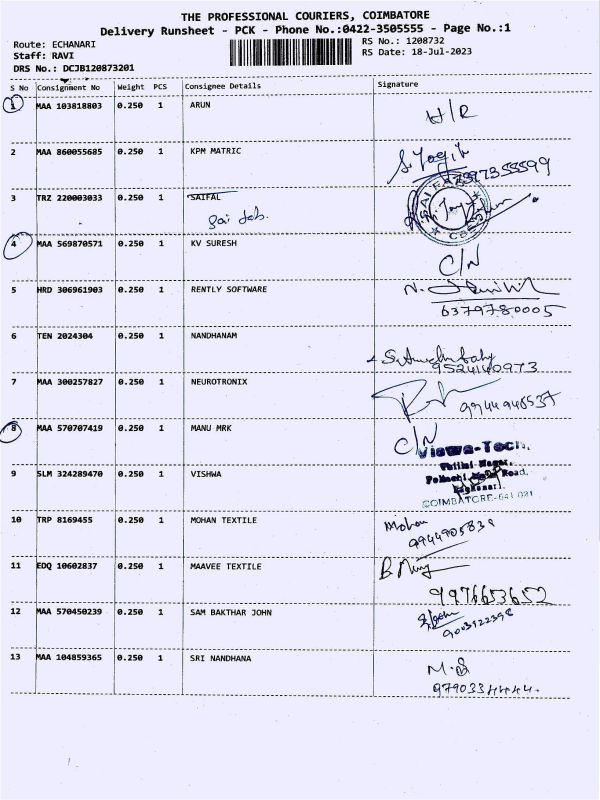 THE PROFESSIONAL COURIERS, COIMBATORE
Delivery Runsheet - PCK - Phone No.:0422-3505555 - Page No.:1
Route: ECHANARI
RS No.: 1208732
Staff: RAVI
RS Date: 18-Jul-2023
DRS No.: DCJB120873201
S No Consignment No Weight PCS Consignee Details Signature
1 MAA 103818803 0.250 1 ARUN H/R
2 MAA 860055685 0.250 1 KPM MATRIC
3 TRZ 220003033 0.250 1 SAIFAL
Sai fab.
4 MAA 569870571 0.250 1 KV SURESH C/N
5 HRD 306961903 0.250 1 RENTLY SOFTWARE
6379780005
6 TEN 2024304 0.250 1 NANDHANAM
9524140973
7 MAA 300257827 0.250 1 NEUROTRONIX
9944948537
8 MAA 570707419 0.250 1 MANU MRK C/N
Viswa-Tech,
9 SLM 324289470 0.250 1 VISHWA
Pollachi Main Road,
COIMBATORE-641 021
10 TRP 8169455 0.250 1 MOHAN TEXTILE Mohan
11 EDQ 10602837 0.250 1 MAAVEE TEXTILE
9976653652
12 MAA 570450239 0.250 1 SAM BAKTHAR JOHN
9003122398
13 MAA 104859365 0.250 1 SRI NANDHANA
9790334444.